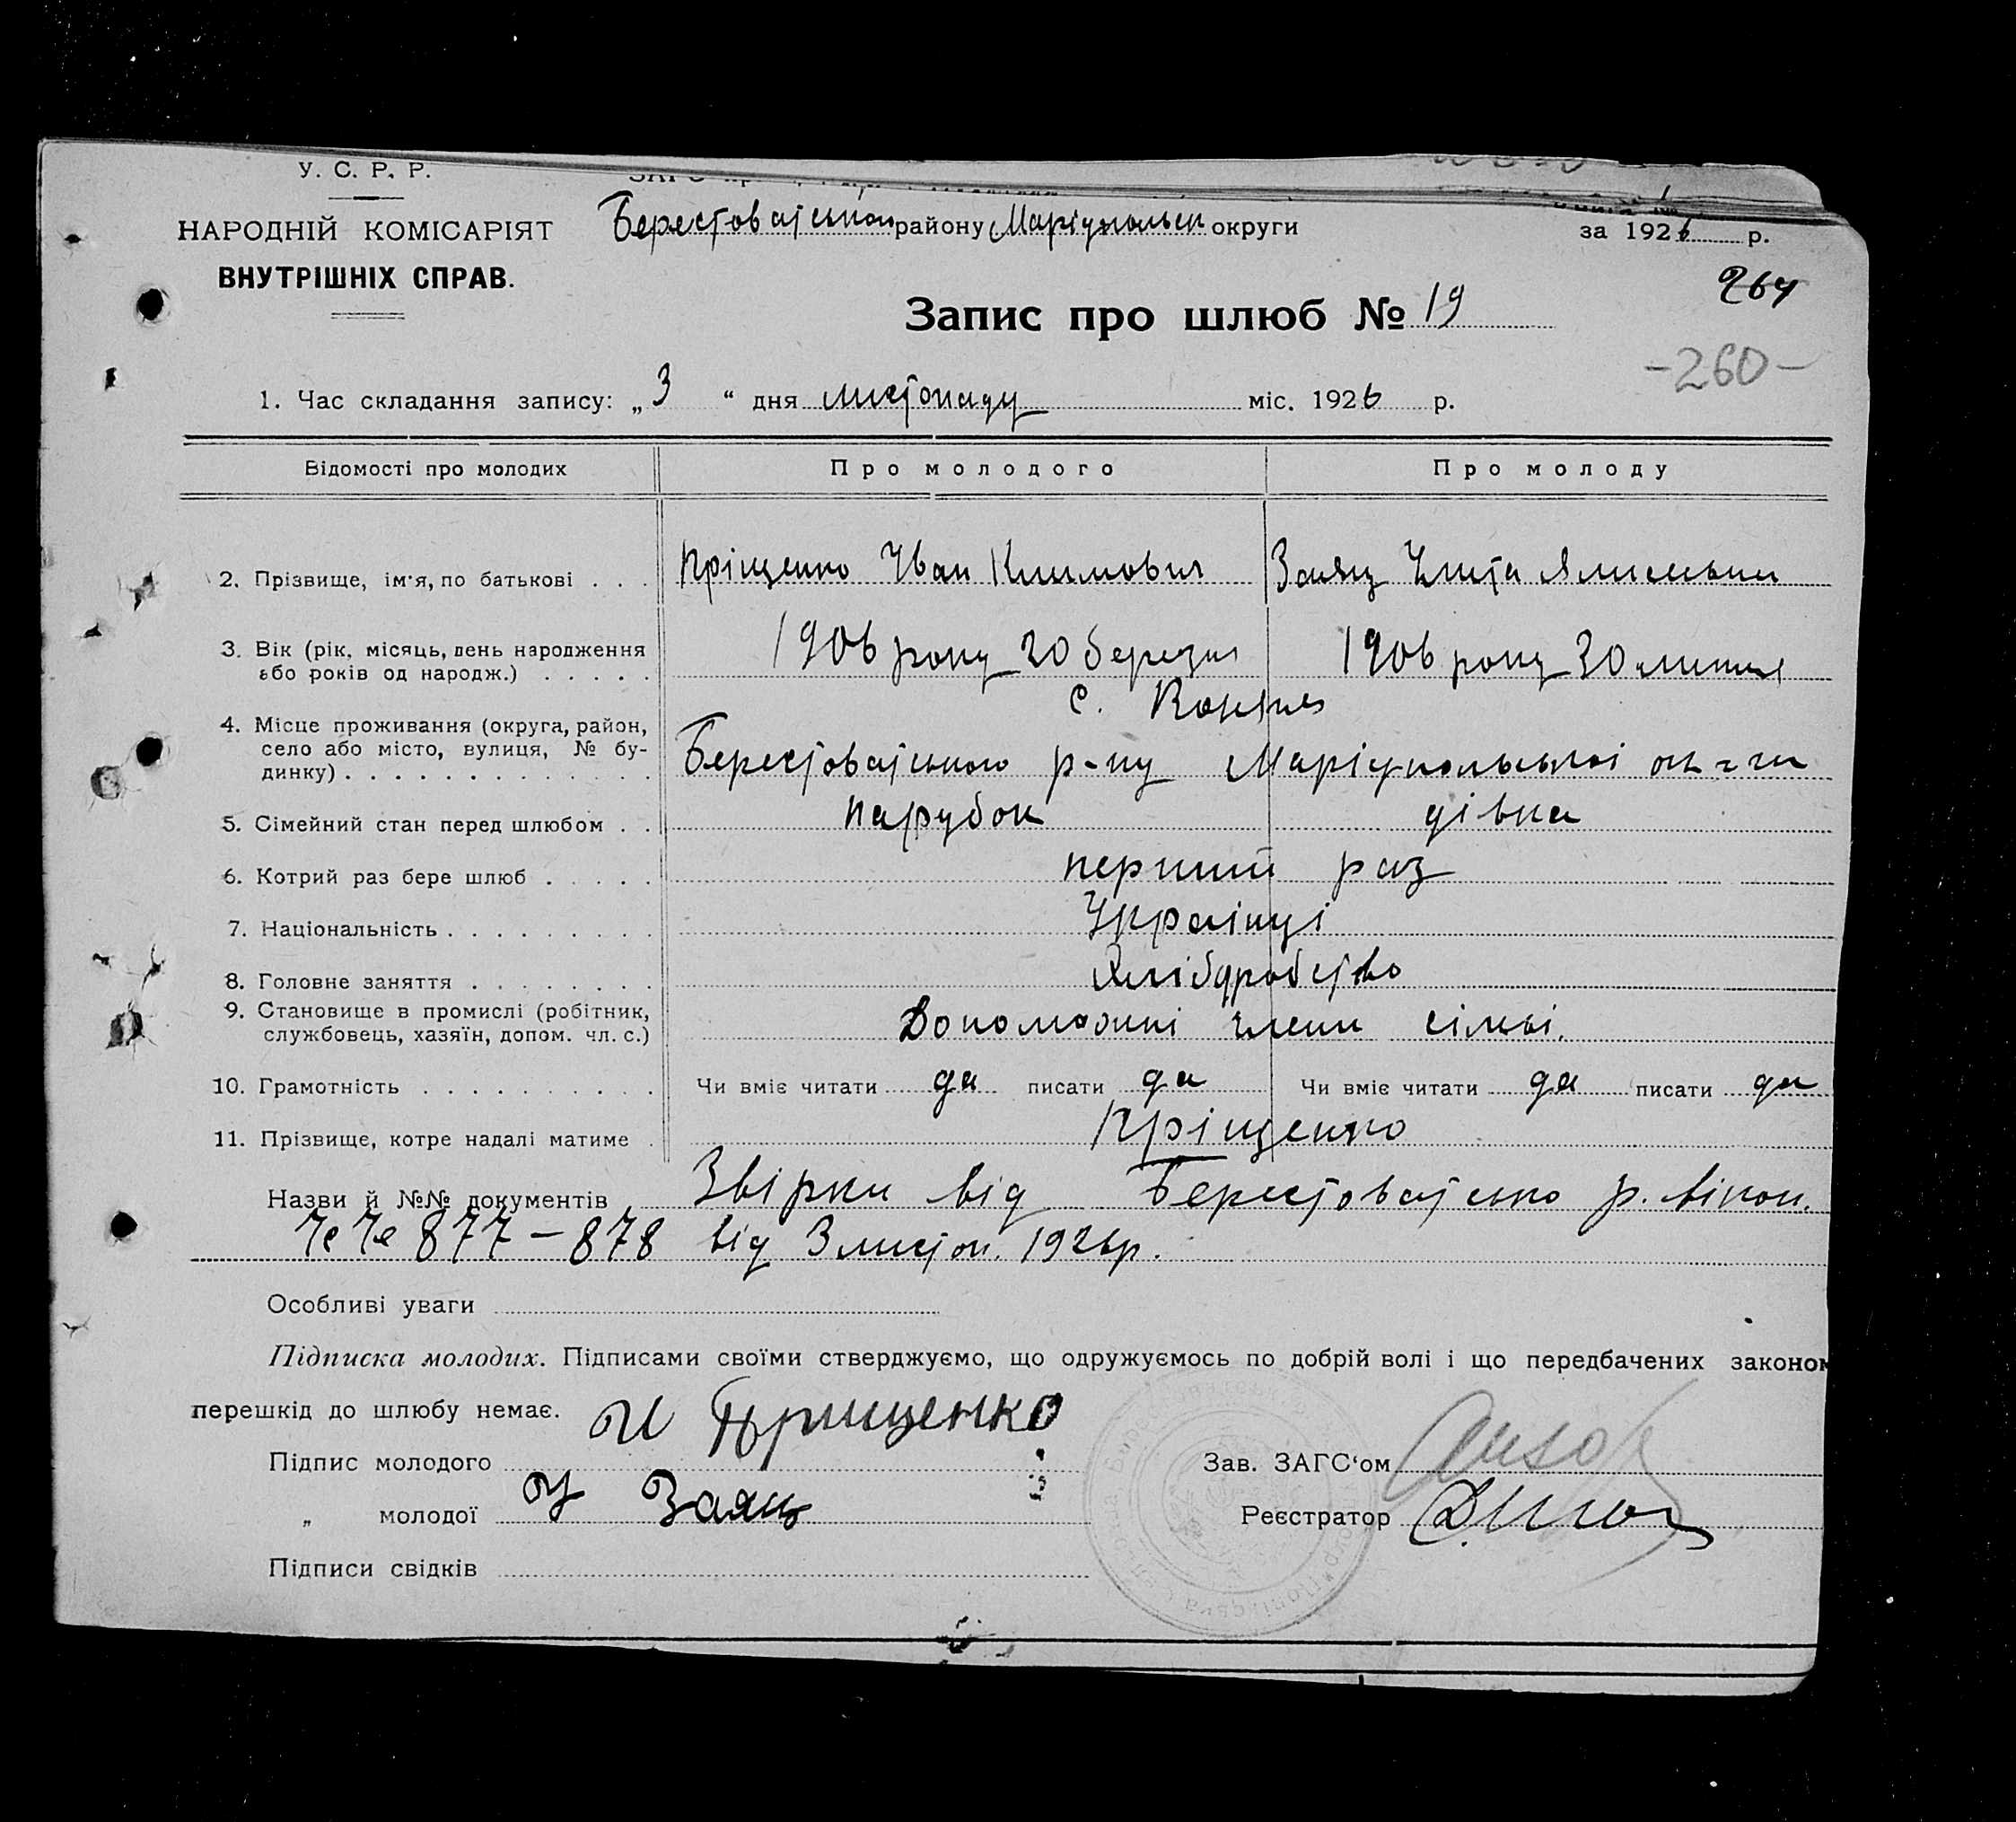 У. С. Р. Р.
НАРОДНІЙ КОМІСАРІЯТ
ВНУТРІШНІХ СПРАВ.
Берестоватського району Маріупольськ округи
за 1926 р.
264
Запис про шлюб № 19
-260-
1. Час складання запису: „3 “ дня листопаду міс. 1926 р.
Відомості про молодих Про молодого Про молоду
2. Прізвище, ім'я, по батькові . . . Пріщенко Іван Климович Заяць
3. Вік (рік, місяць, день народження 1906 року 20 березня 1906 року 30 липня
або років од народж.) . . . . .
с.
4. Місце проживання (округа, район,
село або місто, вулиця, № бу- Берестоватського р-ну Маріупольської ок-ги
динку) . . . . . . . . . . . . .
5. Сімейний стан перед шлюбом . . парубок дівка
6. Котрий раз бере шлюб . . . . . перший раз
7. Національність . . . . . . . . . Українці
8. Головне заняття . . . . . . . . Хлібробство
9. Становище в промислі (робітник,
службовець, хазяїн, допом. чл. с.) Допоможні члени сімьї.
10. Грамотність . . . . . . . . . . Чи вміє читати да писати да Чи вміє читати да писати да
11. Прізвище, котре надалі матиме . Пріщенко
Назви й №№ документів Звірки від Берестоватсько р. вікон.
№№ 877-878 від 3 листоп. 1926р.
Особливі уваги
Підписка молодих. Підписами своїми стверджуємо, що одружуємось по добрій волі і що передбачених законом
перешкід до шлюбу немає.
Підпис молодого И Прищенко
Зав. ЗАГС‘ом
„ молодої У Заяц
Реєстратор
Підписи свідків